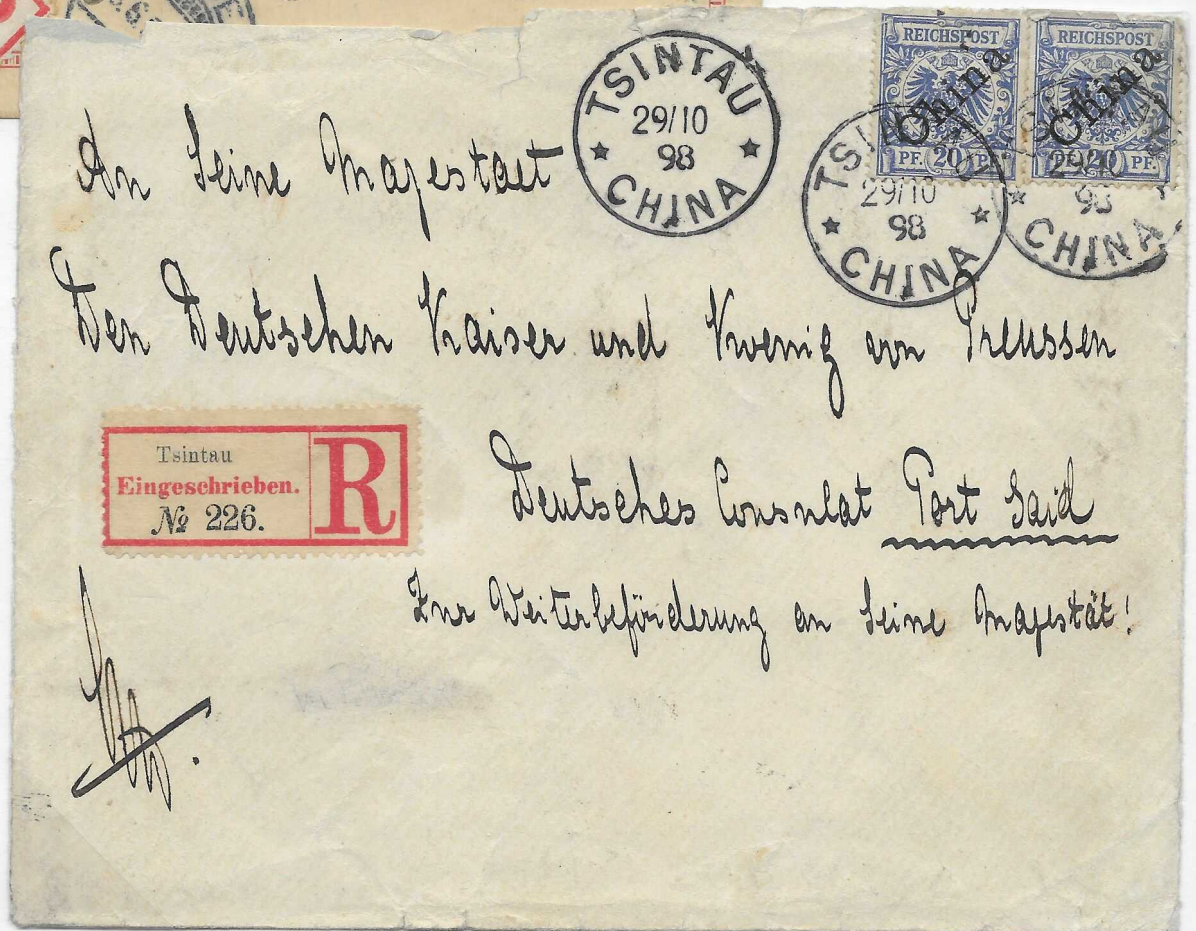 TSINTAU
29/10
98
CHINA
REICHSPOST
China
PF. 20 PF.
REICHSPOST
China
PF. 20 PF.
TSINTAU
29/10
98
CHINA
29/10
98
CHINA
An Seine Majestaet
Den Deutschen Kaiser und Koenig von Preussen
Tsintau
Eingeschrieben.
№ 226.
R
Deutsches Consulat Port Said
Zur Weiterbeförderung an Seine Majestät!